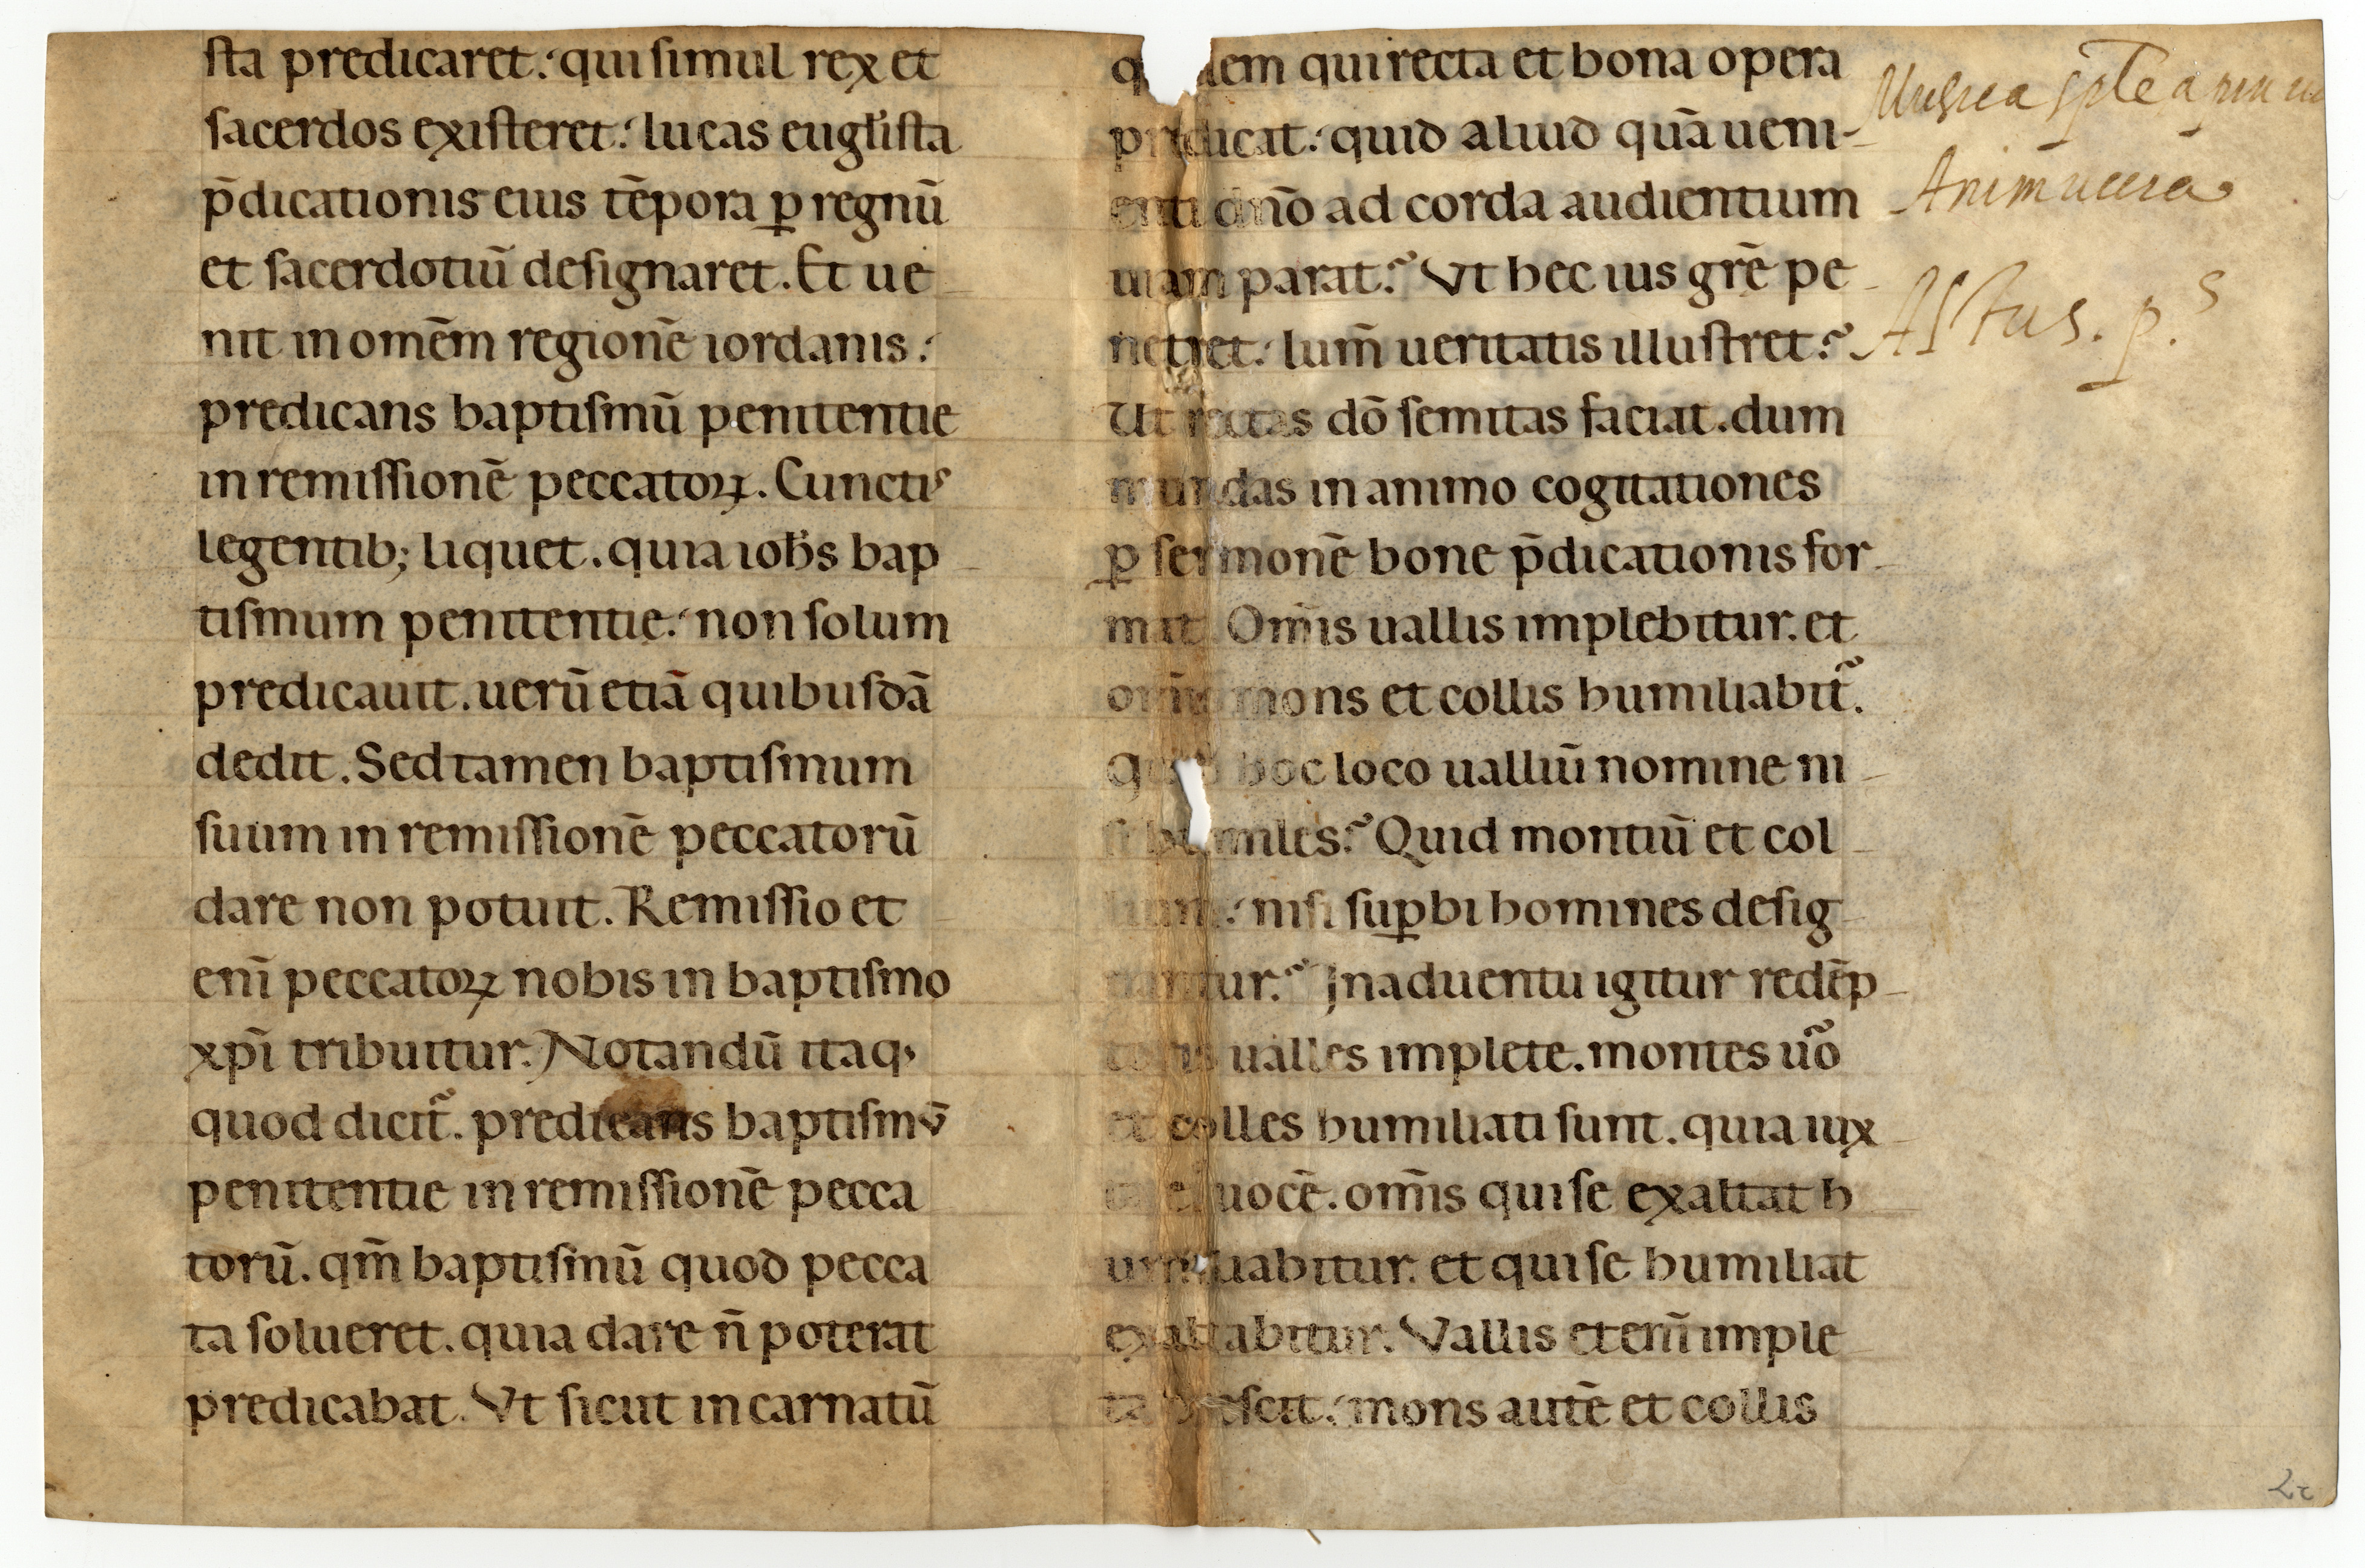 sta predicaret. qui simul rex et
sacerdos existeret. lucas eugl̄ista
p̄dicationis eius tēpora ꝑ regnū
et sacerdotiū designaret. Et ue
nit in omēm regionē iordanis.
predicans baptismū penitentie
in remissionē peccatoꝝ. Cunctis
legentib; liquet. quia ioh̄s bap
tismum penitentie. non solum
predicauit. uerū etiā quibusdā
dedit. Sed tamen baptismum
suum in remissionē peccatorū
dare non potuit. Remissio et
enī peccatoꝝ nobis in baptismo
xpī tribuitur. Notandū itaq;
quod dicit̃. predicans baptismū
penitentie in remissionē pecca
torū. qm̄ baptismū quod pecca
ta solueret. quia dare n̄ poterat
predicabat. Vt sicut incarnatū
dem qui recta et bona opera
predicat. quid aliud quā ueni-
enti dn̄o ad corda audientium
uiam parat? Vt hec uis grē pe
netret. lum̄ ueritatis illustret?
Ut rectas dō semitas faciat. dum
mundas in animo cogitationes
ꝑ sermonē bone p̄dicationis for
mat. Om̄is uallis implebitur. et
om̄is mons et collis humiliabit̃.
hoc loco ualliū nomine ni
si humiles? Quid montiū et col
lium. nisi suꝑbi homines desig
nantur? In aduentu igitur redēp
toris ualles implete. montes ũo
et colles humiliati sunt. quia iux
uocē. om̄is qui se exaltat h
uabitur. et qui se humiliat
exaltabitur. Vallis etenī imple
ta crescit. mons autē et collis
Astus. p.s